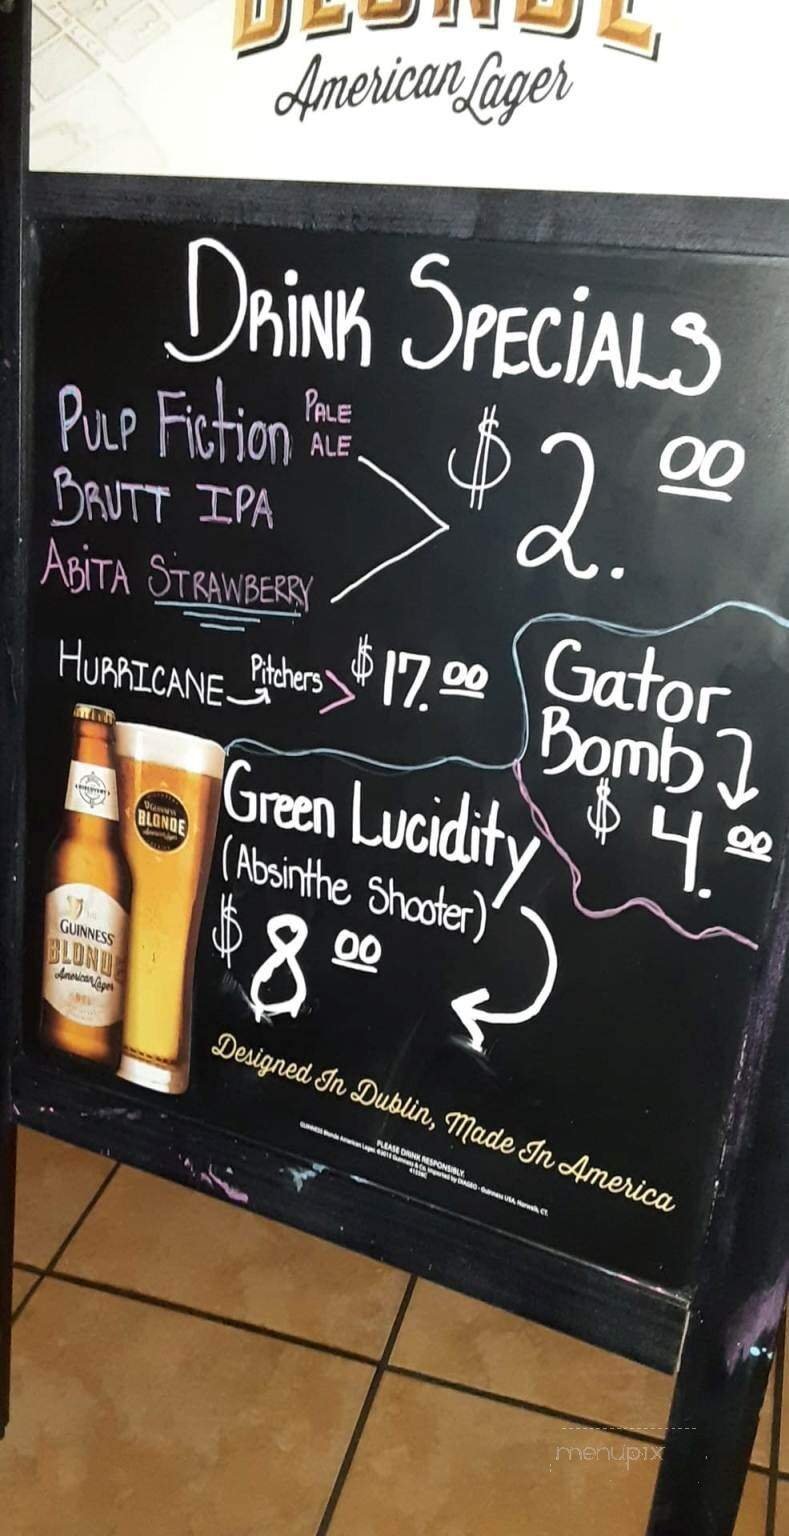 BLONDE
American Lager
DRINK SPECIALS
PULP FICTION PALE ALE
BRUTT IPA
ABITA STRAWBERRY
$2.00
HURRICANE Pitchers > $17.00
Gator
Bomb
$4.00
Green Lucidity
(Absinthe Shooter)
$8.00
GUINNESS
BLONDE
American Lager
DISCOVERY
GUINNESS
BLONDE
American Lager
Designed In Dublin, Made In America
PLEASE DRINK RESPONSIBLY.
menupix